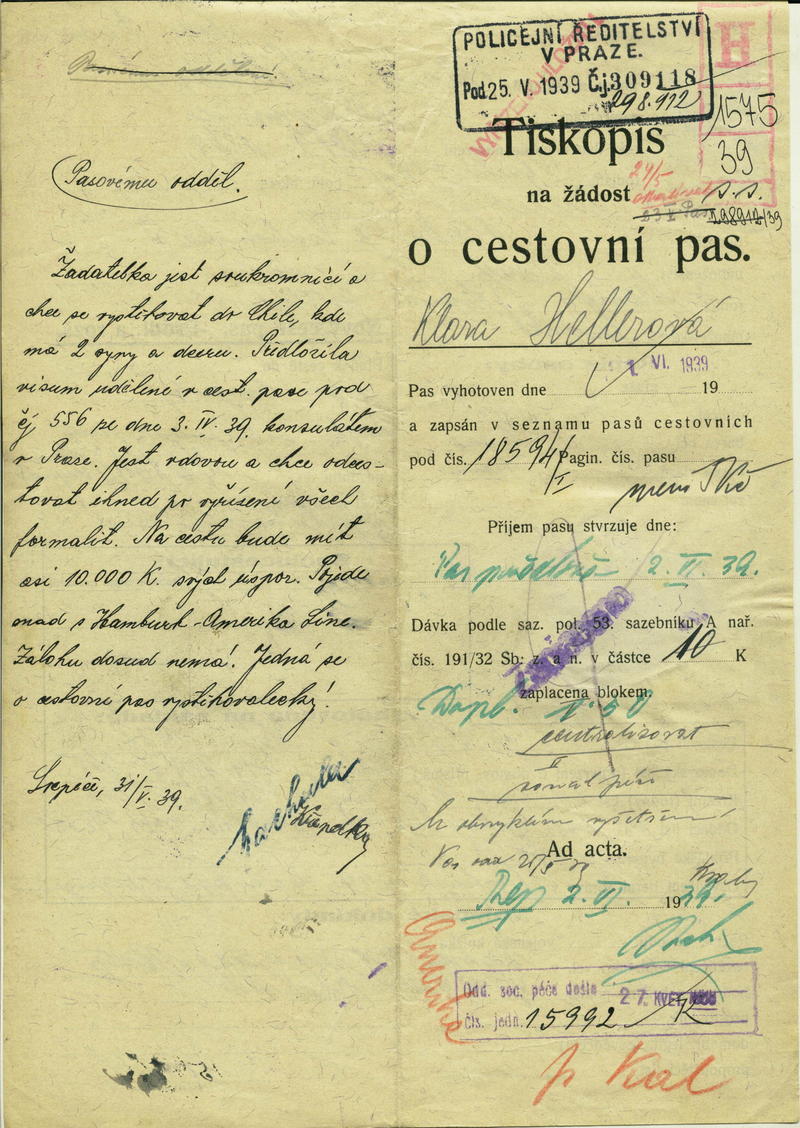 Pasovému odděl.
Žadatelka jest soukromnicí a
chce se vystěhovat do Chile, kde
má 2 syny a dceru. Předložila
visum udělené v cest. pase pod
čj 556 ze dne 3. IV. 39. konsulátem
v Praze. Jest vdovou a chce odces-
tovat ihned po vyřízení všech
formalit. Na cestu bude mít
asi 10.000 K. svých úspor. Pojede
snad s Hamburk-Amerika Line.
Zálohu dosud nemá! Jedná se
o cestovní pas vystěhovalecký!
31/V. 39.
POLICEJNÍ ŘEDITELSTVÍ
V PRAZE.
Pod 25. V. 1939 Čj. 309118
298.912
H
1575
39
Tiskopis
24/5
na žádost
s.s.
298912/39
o cestovní pas.
Klara Hellerová
1. VI. 1939
Pas vyhotoven dne 19
a zapsán v seznamu pasů cestovních
pod čís. 18594/I Pagin. čís. pasu
Příjem pasu stvrzuje dne:
2. VI. 39.
Dávka podle saz. pol. 53. sazebníku A nař.
čís. 191/32 Sb. z. a n. v částce 10 K
zaplacena blokem.
centralisovat
Ad acta.
2. VI. 1939.
Amerika
Odd. soc. péče došlo 27. KVĚT. 1939
čís. jedn. 15992
p Kal